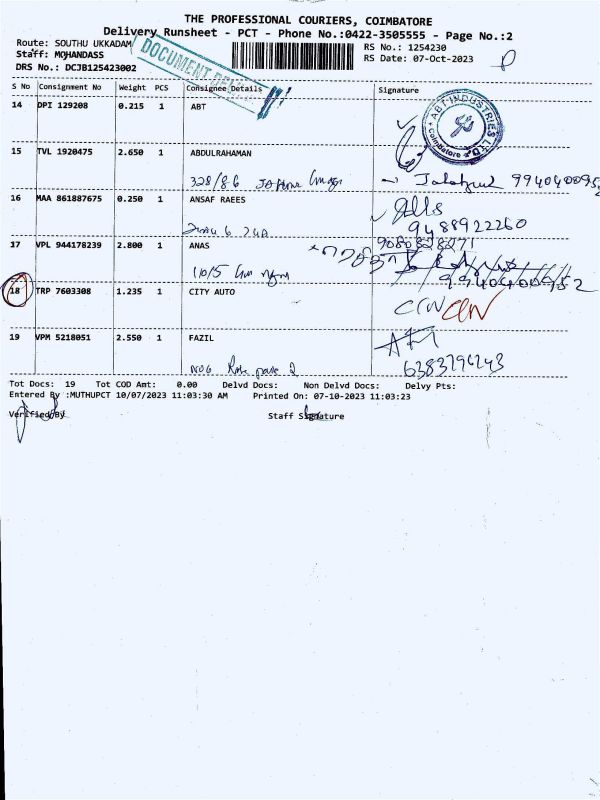 THE PROFESSIONAL COURIERS, COIMBATORE
Delivery Runsheet - PCT - Phone No.:0422-3505555 - Page No.:2
Route: SOUTHU UKKADAM
RS No.: 1254230
Staff: MOHANDASS
RS Date: 07-Oct-2023
DRS No.: DCJB125423002
DOCUMENT
S No Consignment No Weight PCS Consignee Details Signature
14 DPI 129208 0.215 1 ABT
ABT INDUSTRIES LTD
Coimbatore
15 TVL 1920475 2.650 1 ABDULRAHAMAN
328/86
9940400952
16 MAA 861887675 0.250 1 ANSAF RAEES
9488922260
17 VPL 944178239 2.800 1 ANAS
9080828271
10/5
9940400952
18 TRP 7603308 1.235 1 CITY AUTO
19 VPM 5218051 2.550 1 FAZIL
6383796243
Tot Docs: 19 Tot COD Amt: 0.00 Delvd Docs: Non Delvd Docs: Delvy Pts:
Entered By :MUTHUPCT 10/07/2023 11:03:30 AM Printed On: 07-10-2023 11:03:23
Verified By Staff Signature